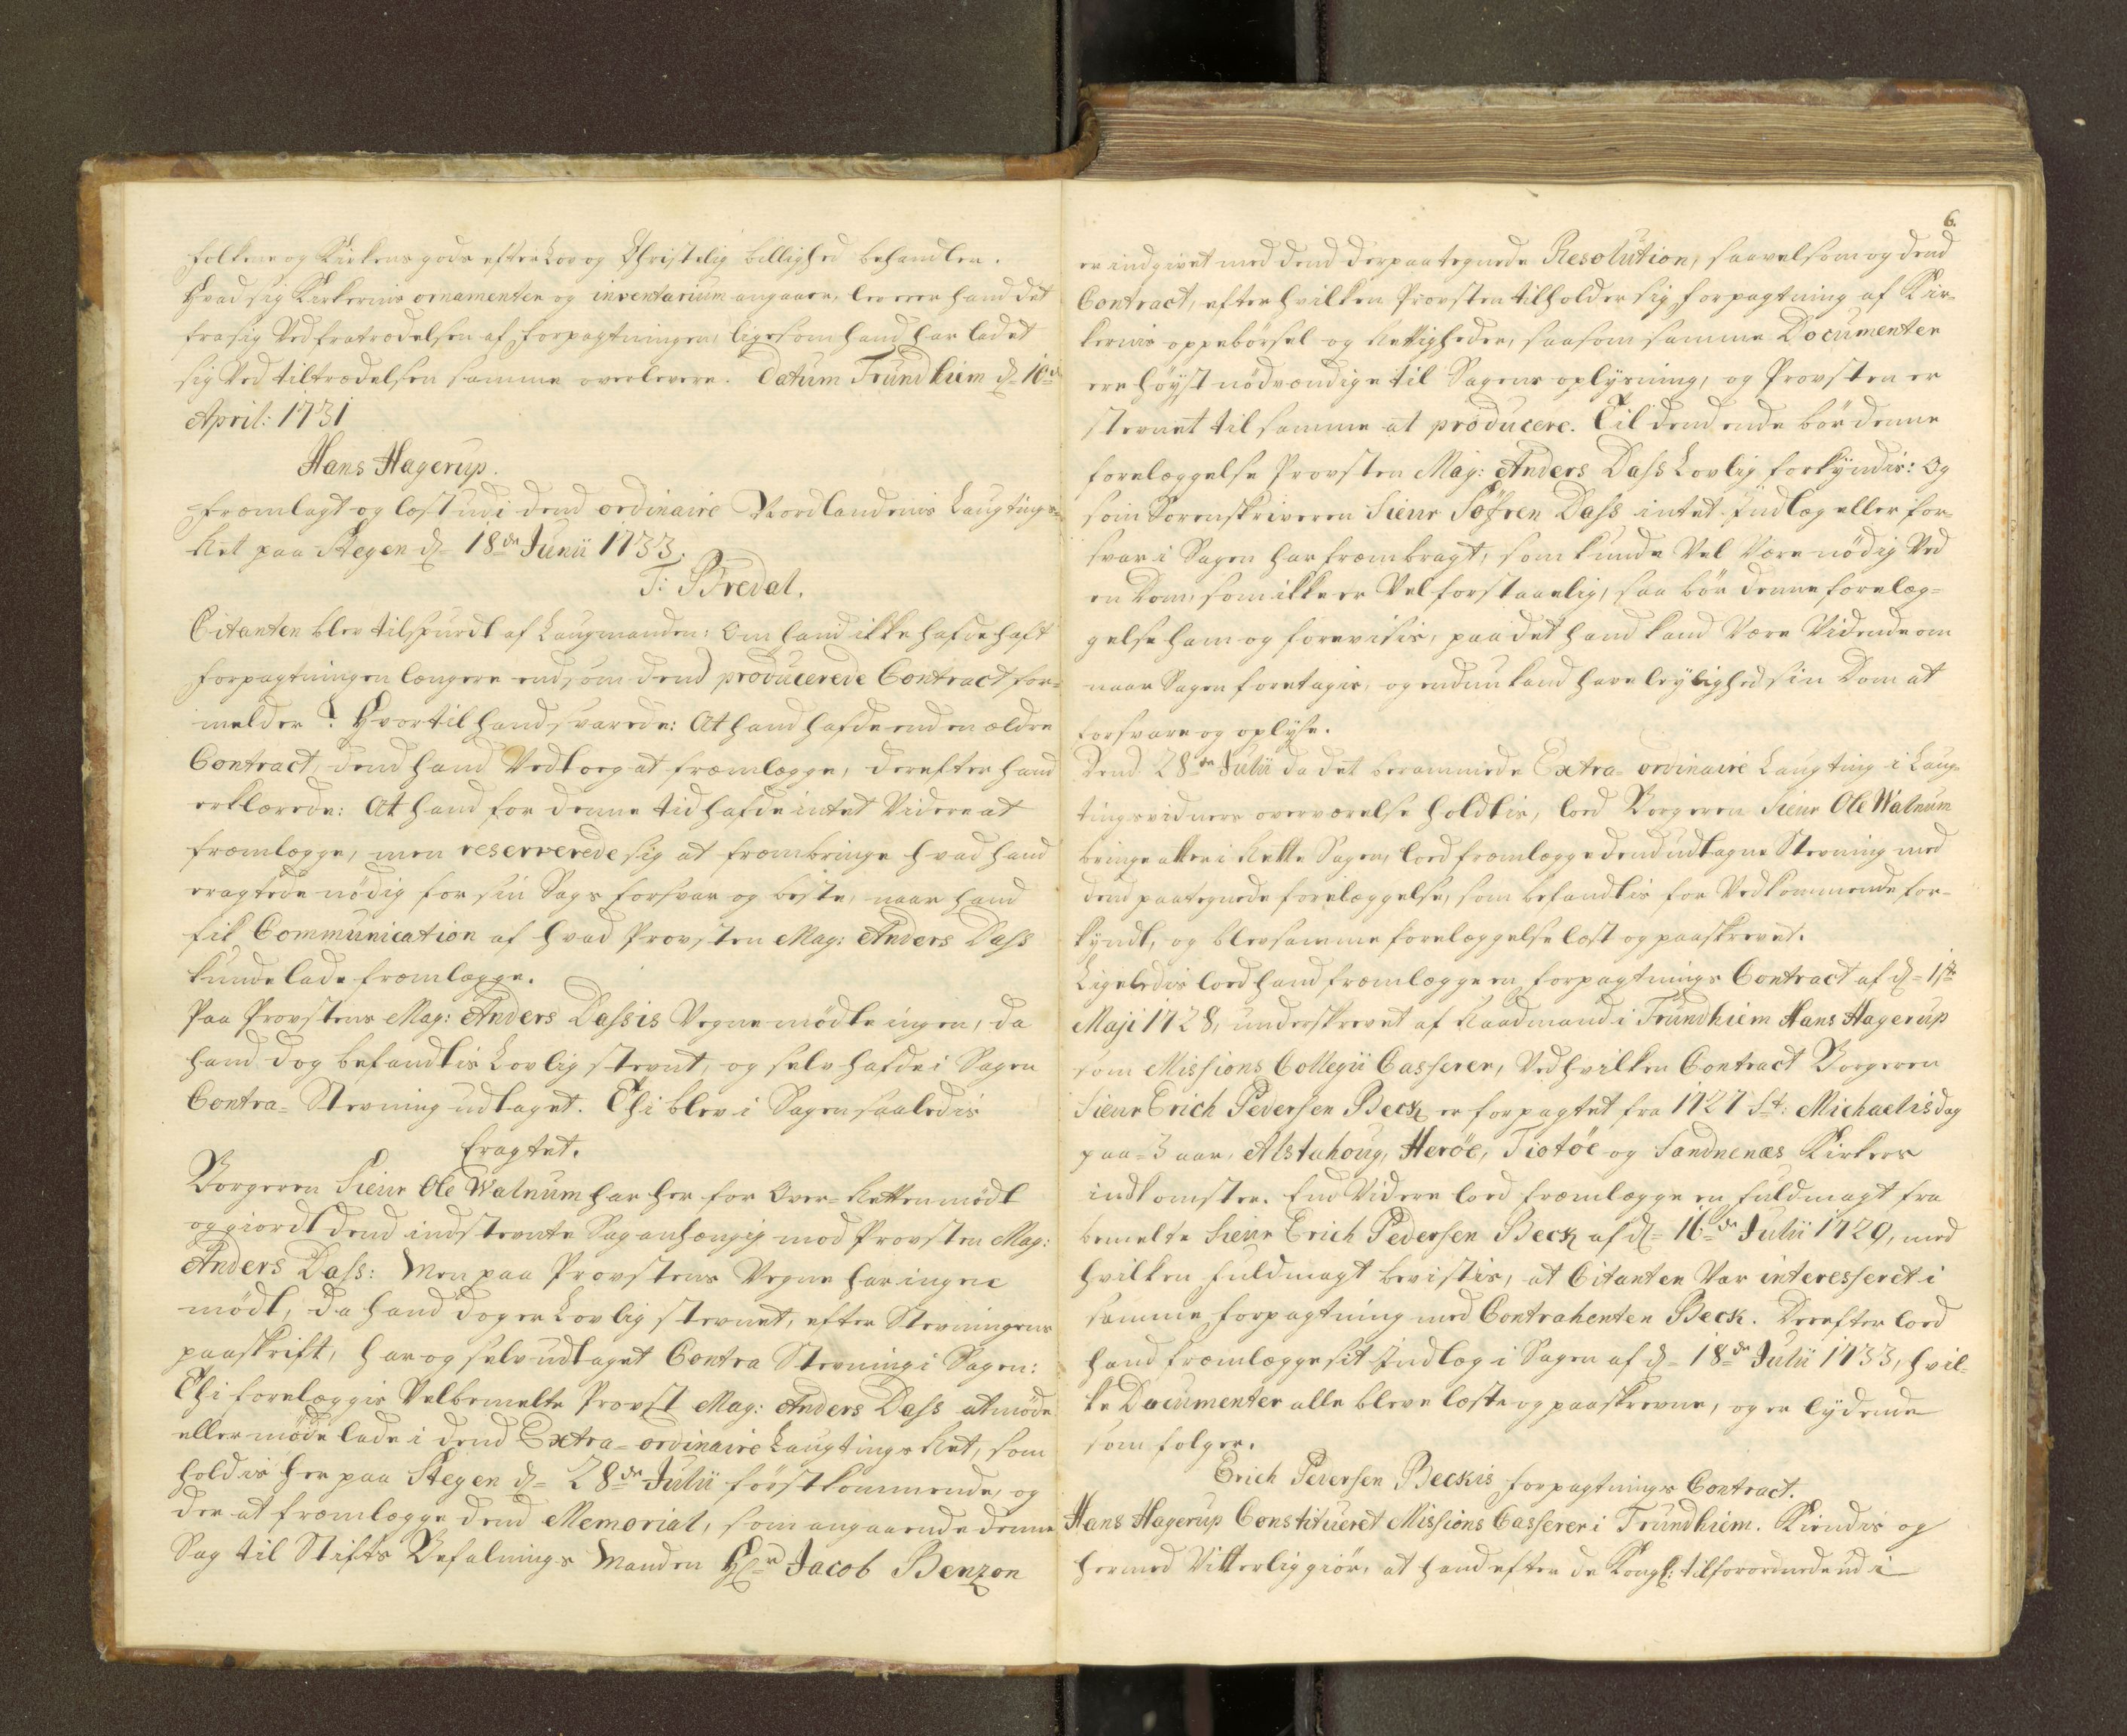 folkene og Kirkens gods efter Lov og Christelig billighed behandles.
Hvad sig Kirkernis ornamenter og inventarium angaaer, leverer hand det
fra sig Ved fratrædelsen af forpagtningen, ligesom hand har ladet
sig Ved tiltrædelsen samme overlevere. Datum Trundhiem d= 10de
April: 1731
Hans Hagerup.
Fremlagt og læst udi dend ordinaire Nordlandenis Laugtings-
Ret paa Stegen d= 18de Junii 1733.
T: Bredal.
Citanten blev tilspurdt af Laugmanden: Om hand ikke hafde haft
forpagtningen længere end, som dend producerede Contract for-
melder? Hvortil hand svarede: At hand hafde end en ældre
Contract, dend hand Vedtoeg at fremlægge, derefter hand
erklærede: At hand for denne tid hafde intet Videre at
fremlægge, men reserverede sig at frembringe hvad hand
eragtede nödig for sin Sags forsvar og beste, naar hand
fik Communication af hvad Provsten Mag: Anders Dass
kunde lade fremlægge.
Paa Provstens Mag: Anders Dassis Vegne mödte ingen, da
hand dog befandtis Lovlig stevnt, og selv hafde i Sagen
Contra= Stevning udtaget. Thi blev i Sagen saaledis
Eragtet.
Borgeren Sieur Ole Walnum har her for Over= Retten mödt
og giordt dend indstevnte Sag anhængig mod Provsten Mag:
Anders Dass: Men paa Provstens Vegne har ingen
mödt, da hand dog er Lovlig stevnet, efter Stevningens
paaskrift, har og selv udtaget Contra Stevning i Sagen:
Thi forelæggis Velbemelte Provst Mag: Anders Dass at möde
eller möde lade i dend Extra= ordinaire Laugtings Ret, som
holdis her paa Stegen d= 28de Julii förstkommende, og
der at fremlægge dend Memorial, som angaaende denne
Sag til Stifts Befalnings Manden Hr Jacob Benzon
6.
er indgivet med dend derpaa tegnede Resolution, saavelsom og dend
Contract, efter hvilken Provsten tilholder sig forpagtning af Kir-
kernis oppebörsel og Rettigheder, saasom samme Documenter
ere höyst nödvendige til Sagens oplysning, og Provsten er
stevnet til samme at producere. Til dend ende bör denne
forelæggelse Provsten Mag: Anders Dass Lovlig forkyndis: Og
som Sorenskriveren Sieur Söfren Dass intet Indlæg eller for-
svar i Sagen har frembragt, som kunde Vel Være nödig Ved
en Dom, som ikke er Vel forstaaelig, saa bör denne forelæg-
gelse ham og forevisis, paa det hand kand Være Vidende om
naar Sagen foretagis, og endnu kand have leylighed sin Dom at
forsvare og oplyse.
Dend 28de Julii da det berammede Extra= ordinaire Laugting i Laug-
tingsvidners overværelse holdtis, loed Borgeren Sieur Ole Walnum
bringe atter i Rette Sagen, loed fremlægge dend udtagne Stevning med
dend paategnede forelæggelse, som befandtis for Vedkommende for-
kyndt, og blev samme forelæggelse læst og paaskrevet.
Ligeledis loed hand fremlægge en forpagtnings Contract af d= 1ste
Maji 1728, underskrevet af Raadmand i Trundhiem Hans Hagerup
som Missions Collegii Casserer, Ved hvilken Contract Borgeren
Sieur Erich Pedersen Beck er forpagtet fra 1727 St: Michaelis dag
paa= 3 aar, Alstahoug, Heröe, Tiotöe og Sandnenæs Kirkers
indkomster. End Videre loed fremlægge en fuldmagt fra
bemelte Sieur Erich Pedersen Beck af d= 16de Julii 1729, med
hvilken fuldmagt bevistis, at Citanten Var interesseret i
samme forpagtning med Contrahenten Beck. Derefter loed
hand fremlægge sit Indlæg i Sagen af d= 18de Julii 1733, hvil-
ke Documenter alle bleve læste og paaskrevne, og er lydende
som fölger.
Erich Pedersen Beckis forpagtnings Contract.
Hans Hagerup Constitueret Missions Casserer i Trundhiem. Kiendis og
hermed Vitterlig giör, at hand efter de Kongl: tilforordnede udi